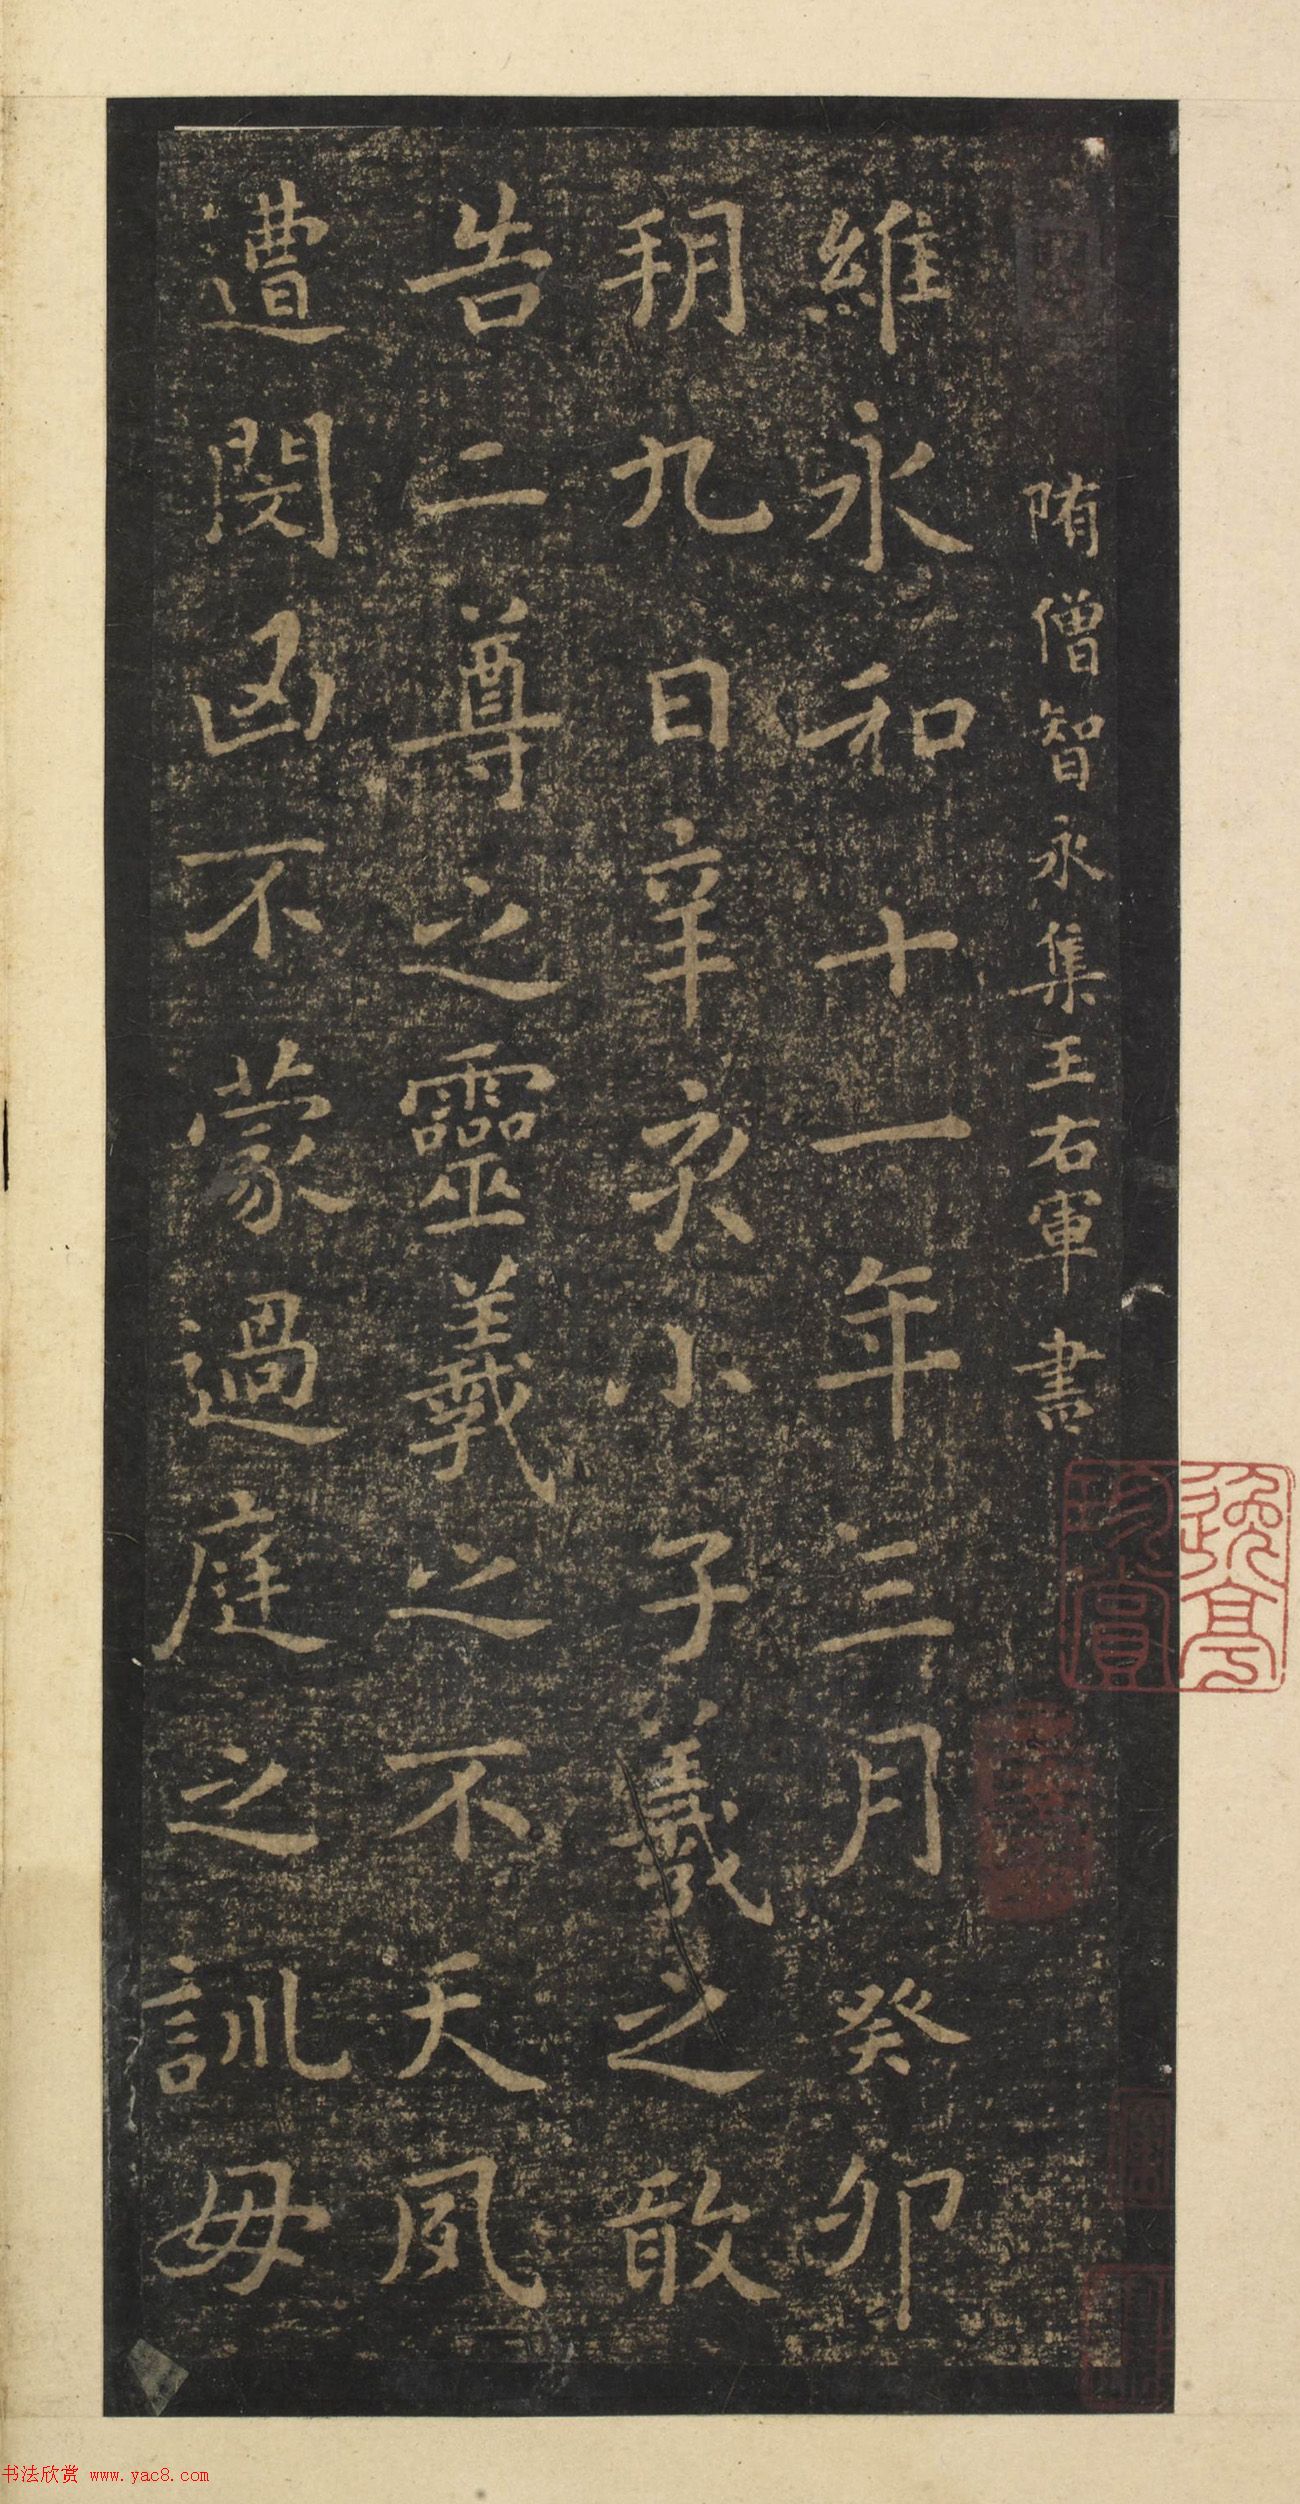 隋僧智永集王右軍書
維永和十一年三月癸卯
朔九日辛亥小子羲之敢
告二尊之靈羲之不天夙
遭閔凶不蒙過庭之訓毋
珍賞
書法欣赏 www.yac8.com